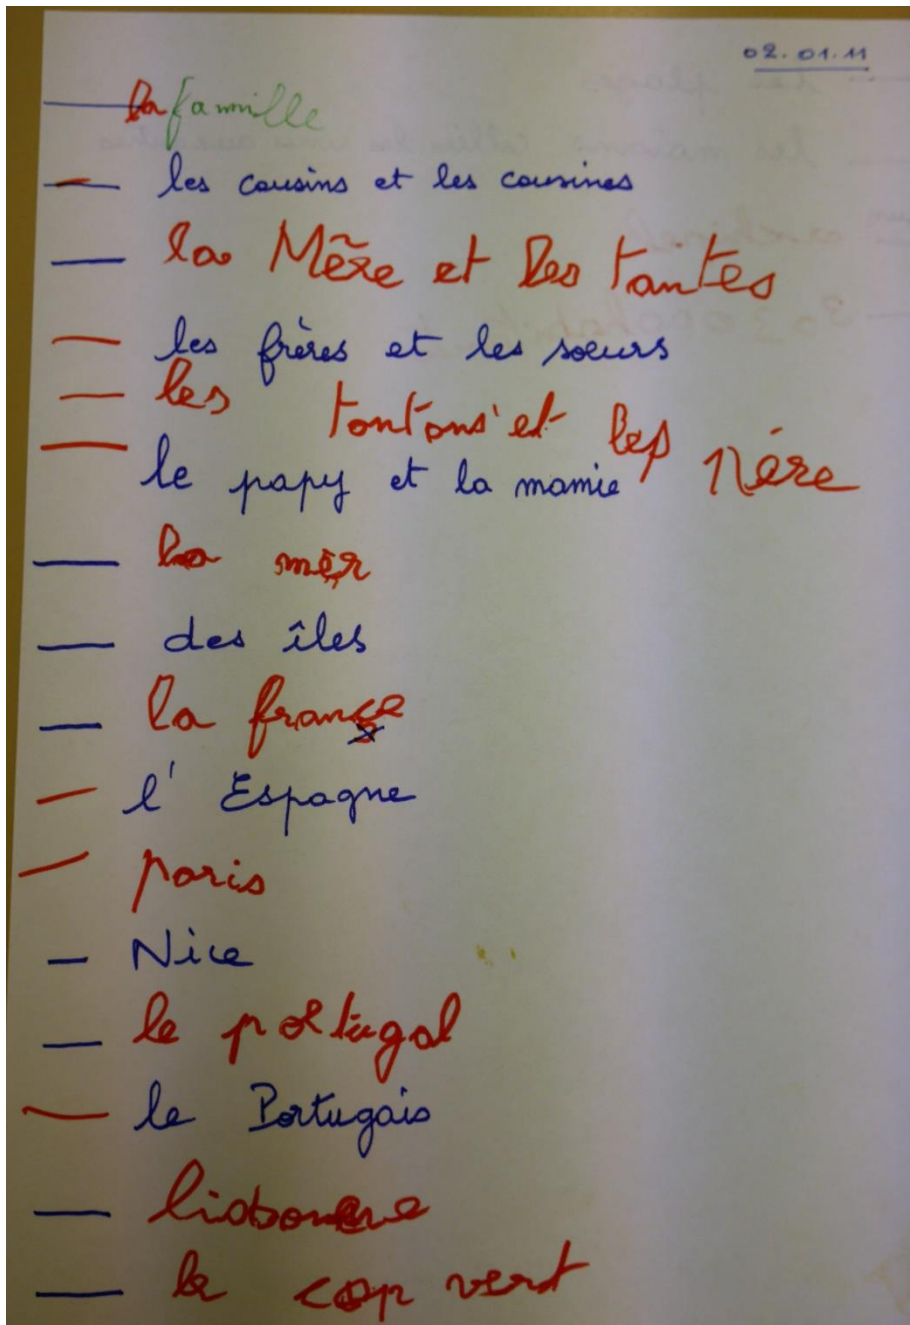 02.01.11
la famille
les cousins et les cousines
la Mère et les tantes
les frères et les soeurs
les tontons et les père
le papy et la mamie
la mer
des îles
la france
l'Espagne
paris
Nice
le portugal
le Portugais
lisbonne
le cap vert